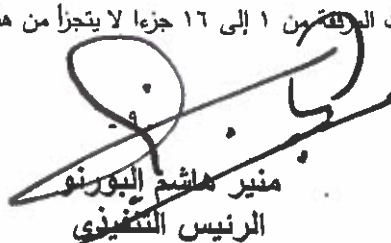 المرفقة من ١ إلى ١٦ جزءا لا يتجزأ من
- ٩ -
منير هاشم البورنو
الرئيس التنفيذي